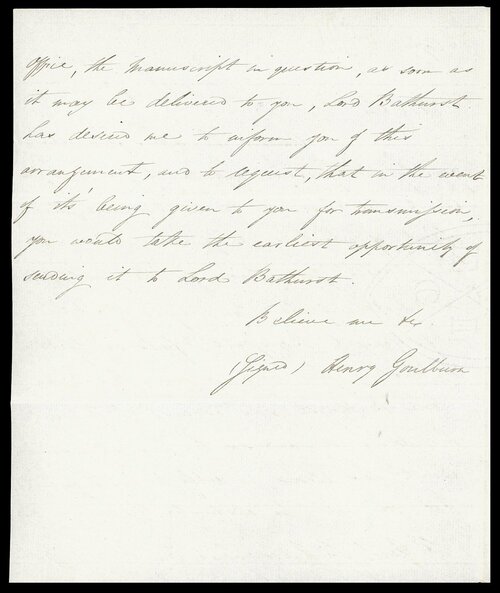 Office, the Manuscript in question, as soon as
it may be delivered to you, Lord Bathurst
has desired me to inform you of this
arrangement, and to request, that in the event
of its' being given to you for transmission,
you would take the earliest opportunity of
sending it to Lord Bathurst.
Believe me &c
(Signed) Henry Goulburn